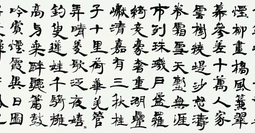 煙柳畫橋風簾翠
幕參差十萬人家
雲樹繞堤沙怒濤
卷霜雪天塹無涯
市列珠璣戶盈羅
綺競豪奢重湖疊
巘清嘉有三秋桂
子十里荷花羌管
弄晴菱歌泛夜嬉
釣叟蓮娃千騎擁
高牙乘醉聽簫鼓
吟賞煙霞異日圖